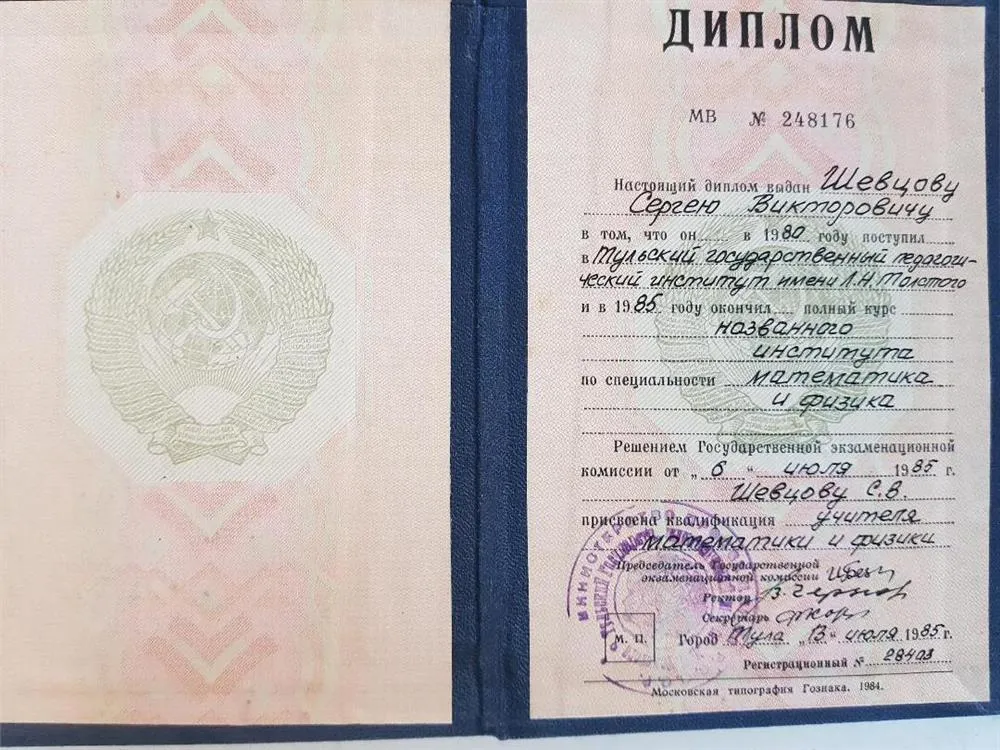 ДИПЛОМ
МВ № 248176
Настоящий диплом выдан Шевцову
Сергею Викторовичу
в том, что он в 1980 году поступил
в Тульский государственный педагоги-
ческий институт имени Л.Н. Толстого
и в 1985 году окончил полный курс
названного
института
по специальности математика
и физика
Решением Государственной экзаменационной
комиссии от „6“ июля 1985 г.
Шевцову С.В.
присвоена квалификация учителя
математики и физики
Председатель Государственной
экзаменационной комиссии
Ректор
Секретарь
М. П. Город Тула „13“ июля 1985 г.
Регистрационный № 28403
Московская типография Гознака. 1984.
МИНИСТЕРСТВО